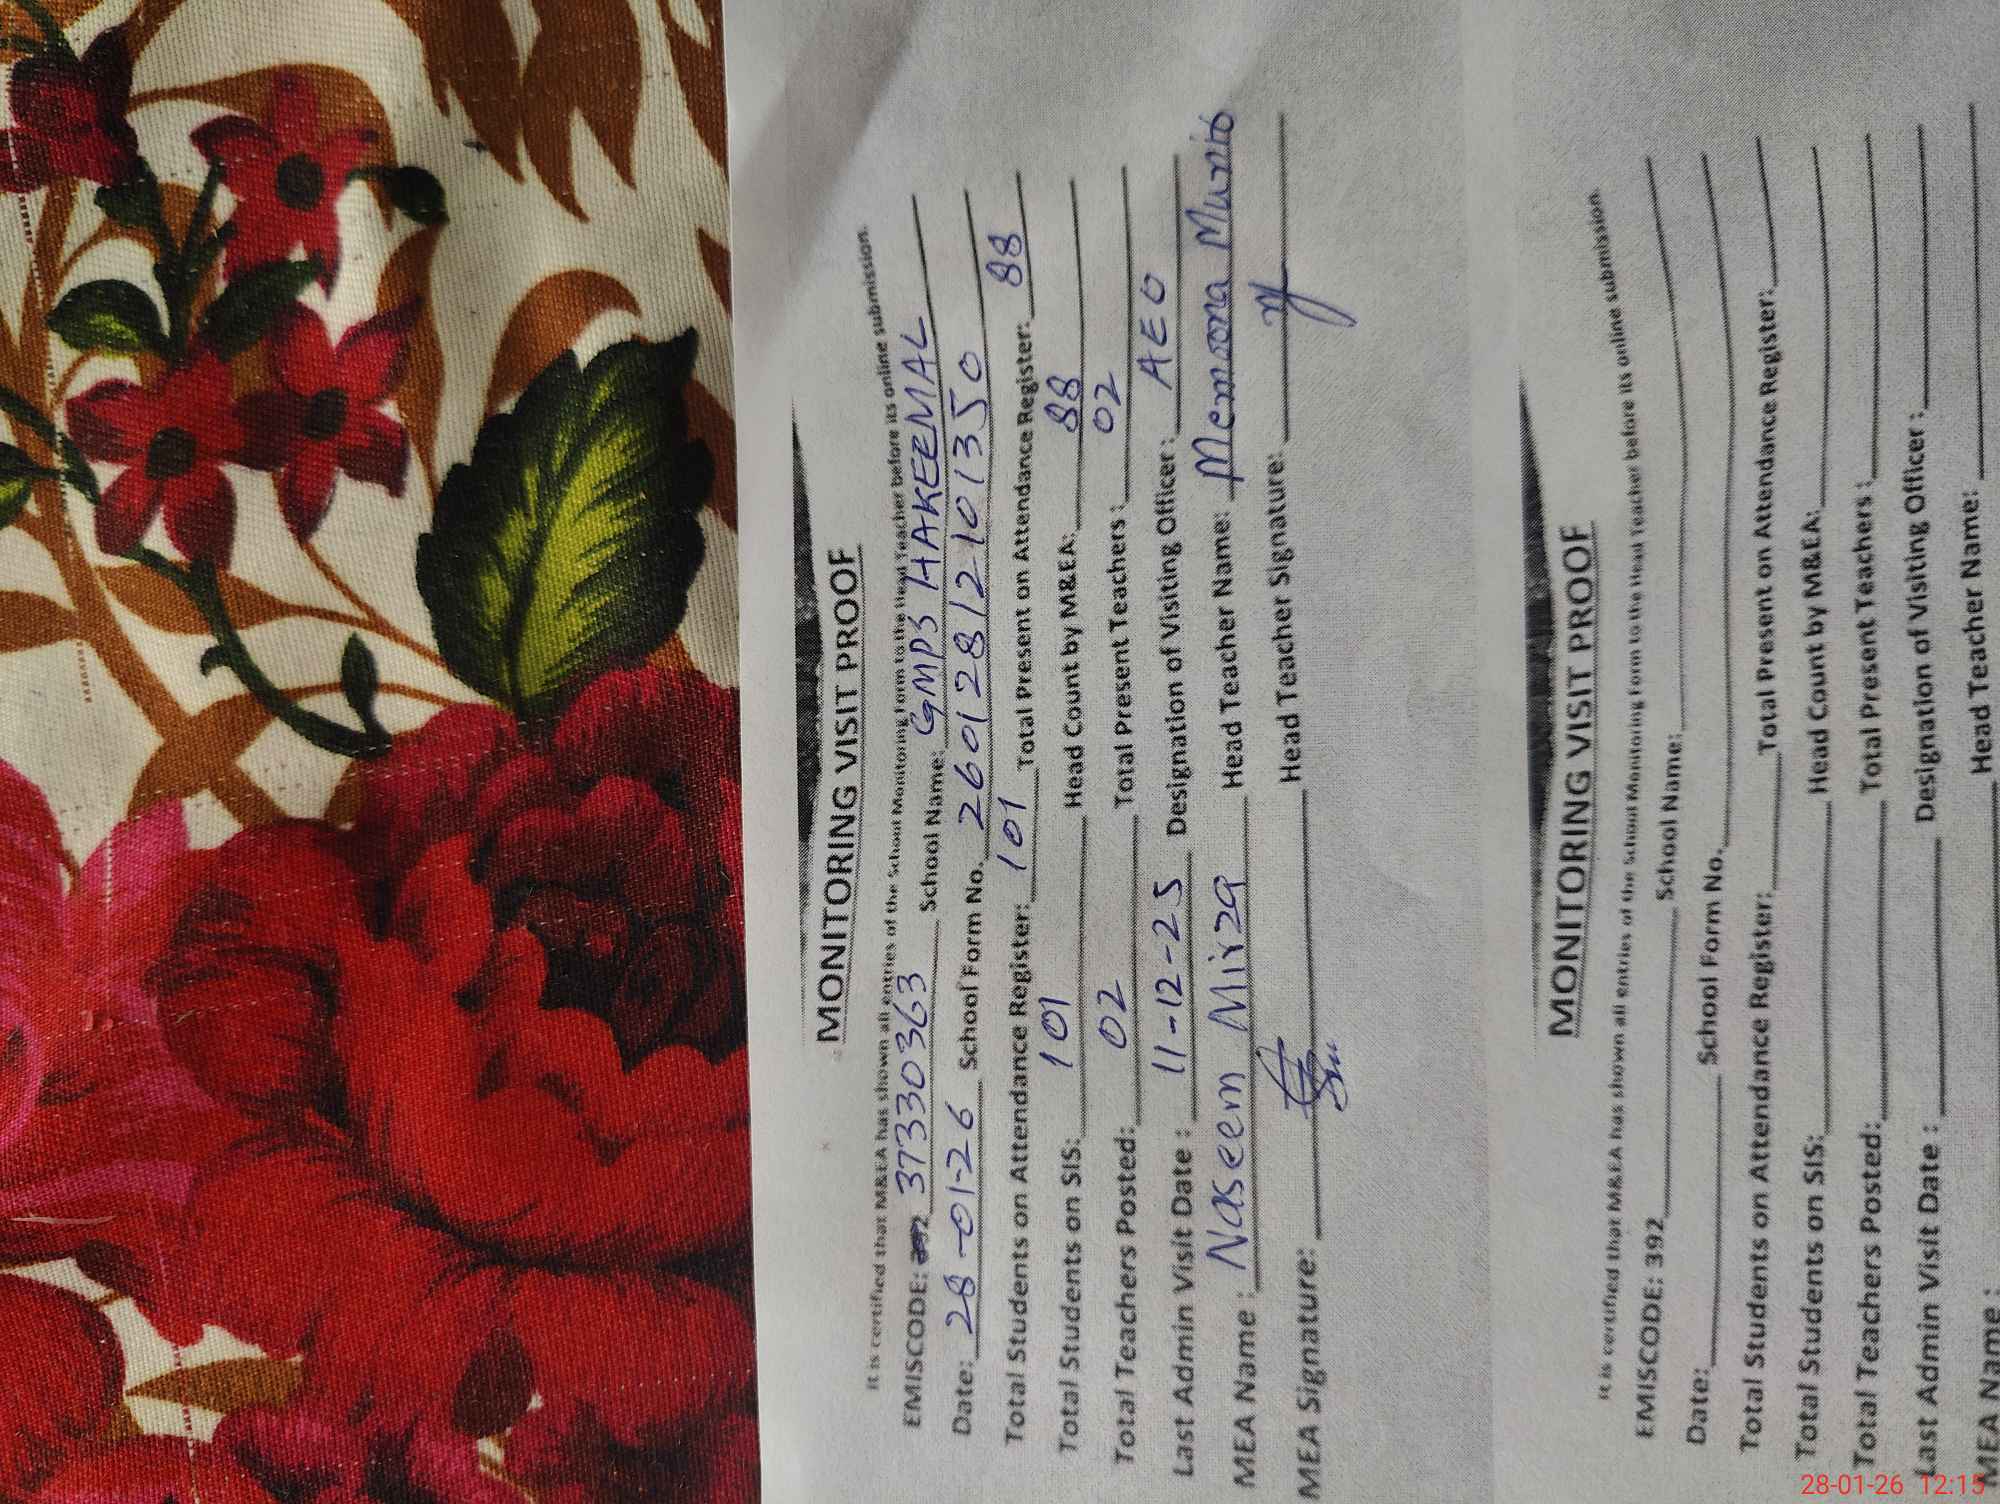 MONITORING VISIT PROOF
It is certified that M&EA has shown all entries of the School Monitoring Form to the Head Teacher before its online submission.
EMISCODE: 37330363 School Name: GMPS HAKEEMAL
Date: 28-01-26 School Form No. 26012812101350
Total Students on Attendance Register: 101 Total Present on Attendance Register: 88
Total Students on SIS: 101 Head Count by M&EA: 88
Total Teachers Posted: 02 Total Present Teachers: 02
Last Admin Visit Date: 11-12-25 Designation of Visiting Officer: AEO
MEA Name: Naseem Mirza Head Teacher Name: Memoona
MEA Signature: Head Teacher Signature:
MONITORING VISIT PROOF
It is certified that M&EA has shown all entries of the School Monitoring Form to the Head Teacher before its online submission.
EMISCODE: 392 School Name:
Date: School Form No.
Total Students on Attendance Register: Total Present on Attendance Register:
Total Students on SIS: Head Count by M&EA:
Total Teachers Posted: Total Present Teachers:
Last Admin Visit Date: Designation of Visiting Officer:
MEA Name: Head Teacher Name:
28-01-26 12:15